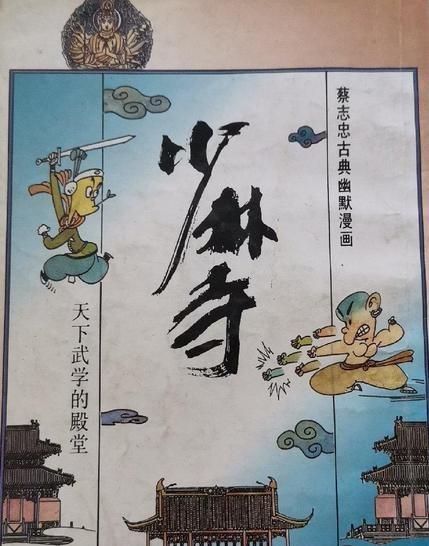 蔡志忠古典幽默漫画
少林寺
天下武学的殿堂